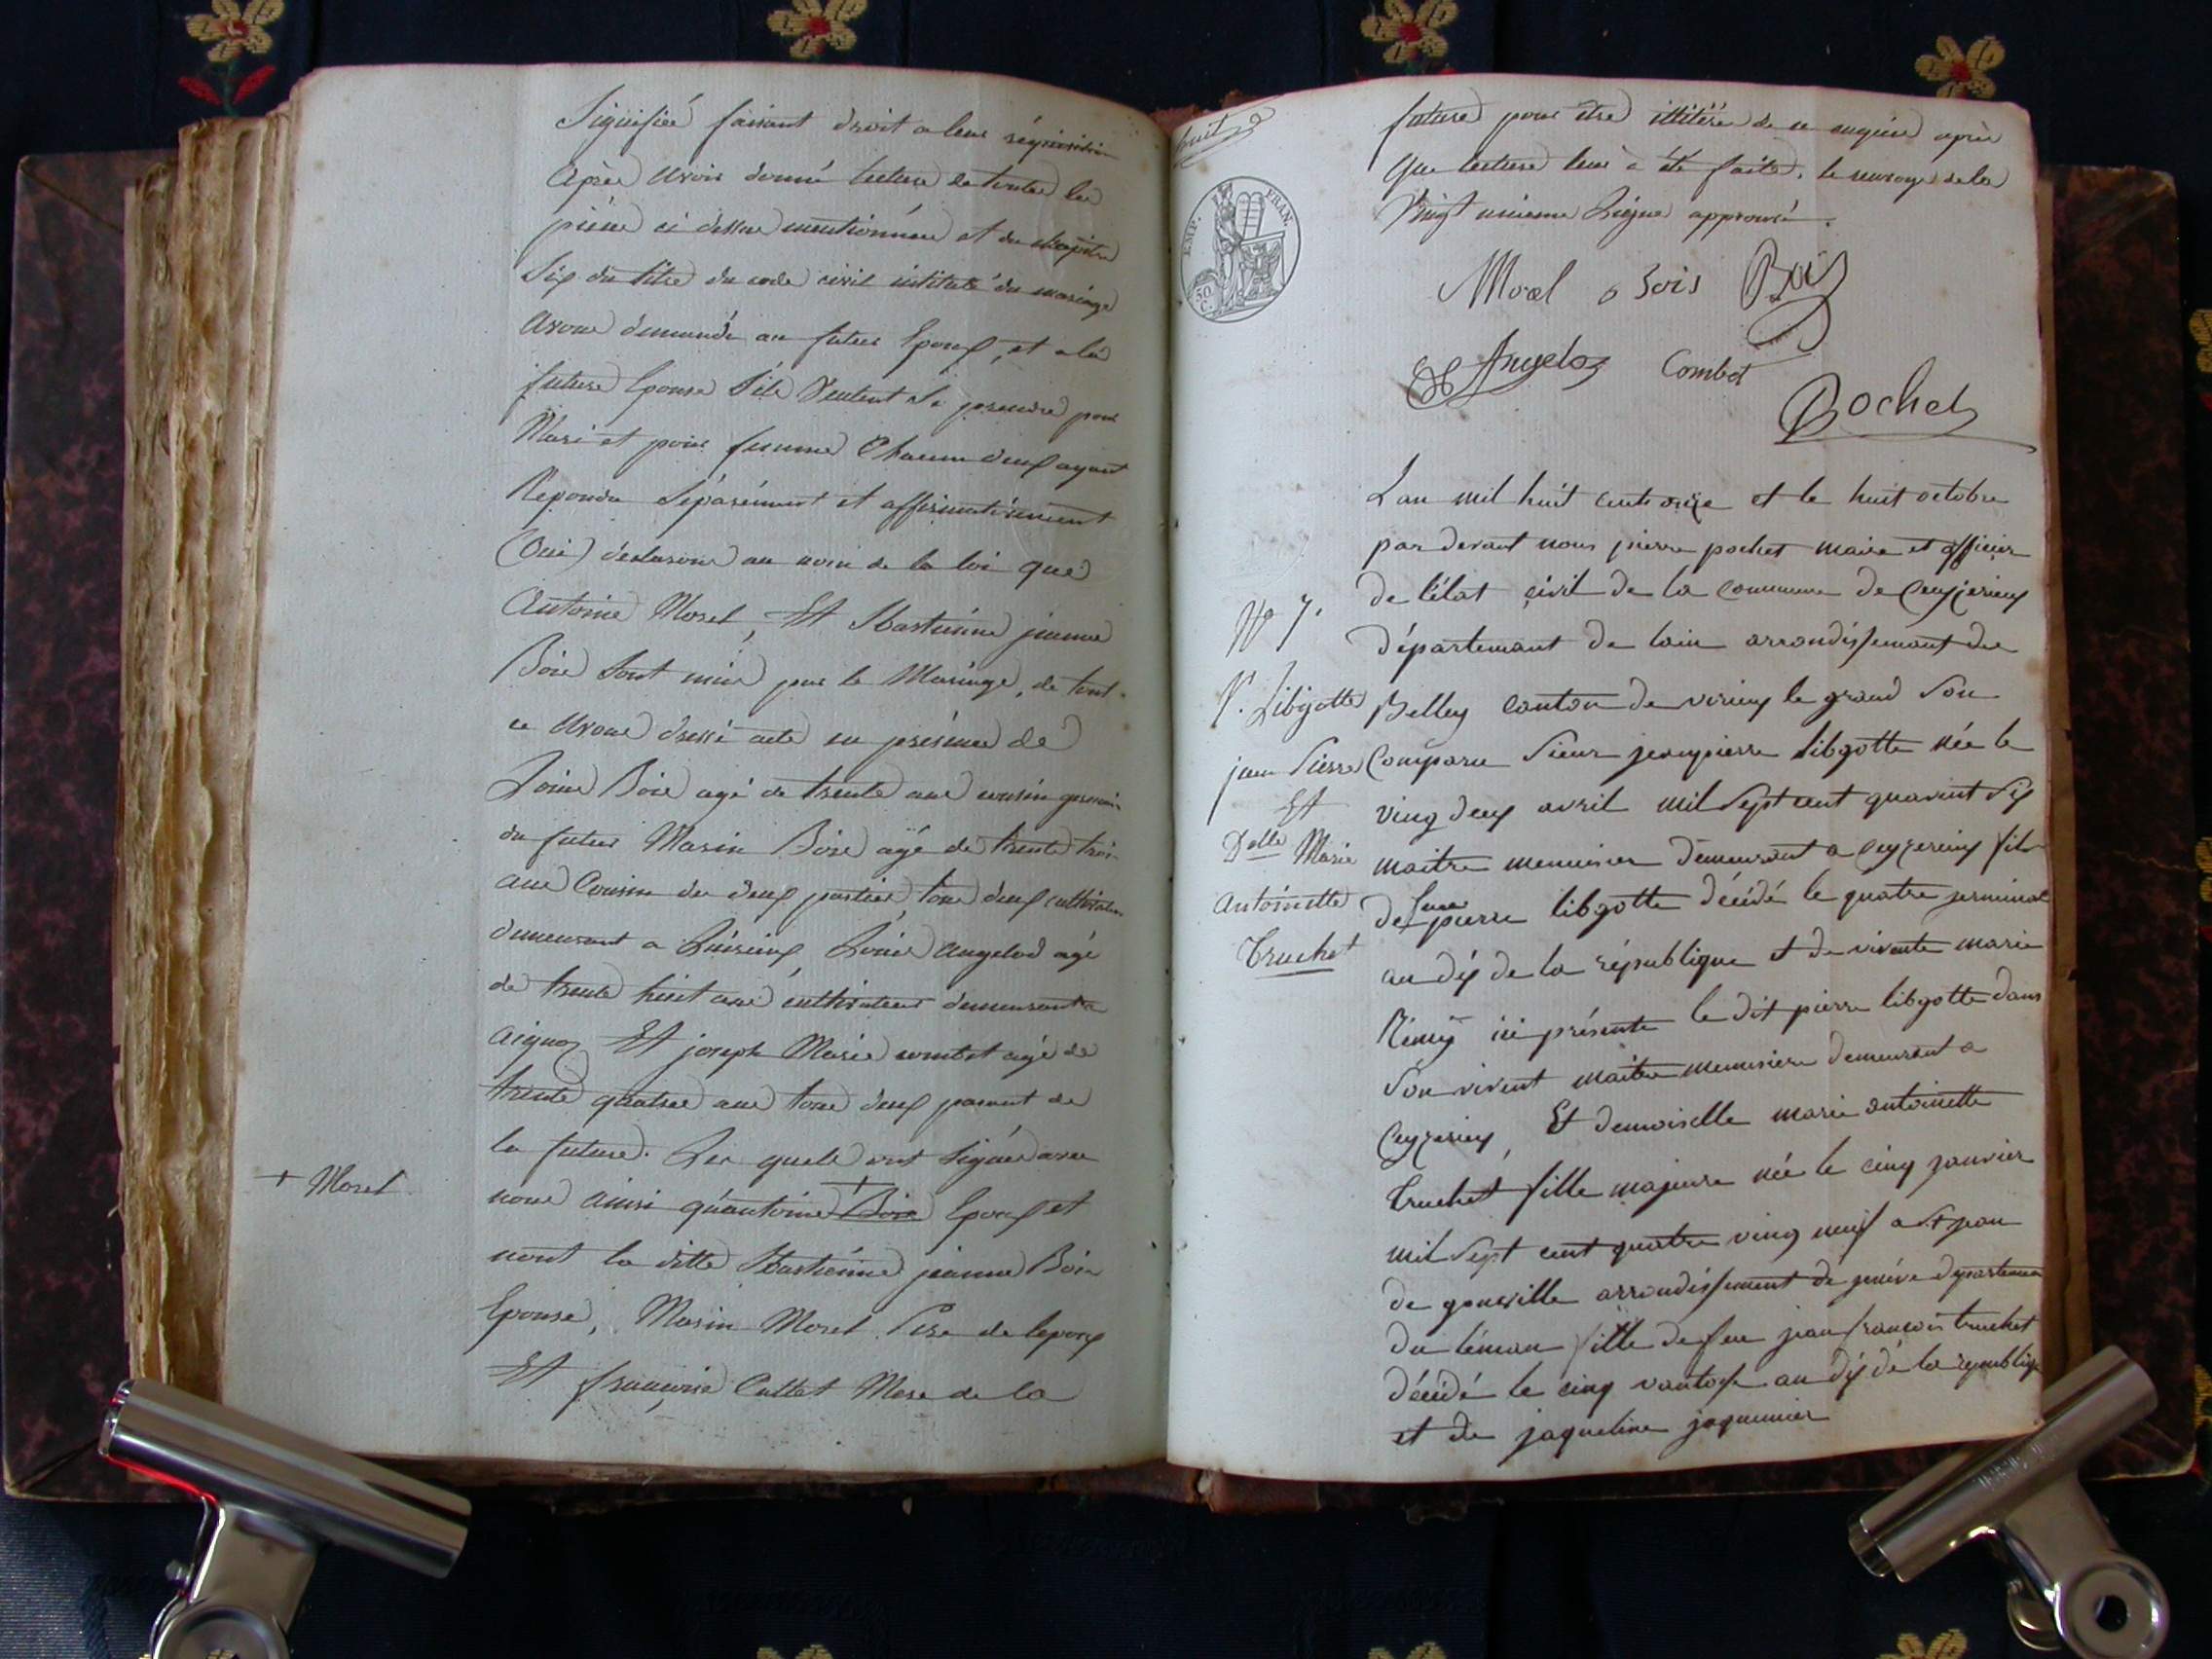 Signifiée faisant droit a leur réquisition
Après avoir donné lecture de toutes les
pièces ci dessus mentionnées et du chapitre
Six du titre du code civil intitulé du mariage
Avons demandé au futur Epoux, et a la
future Epouse S'ils Veulent se prendre pour
Mari et pour femme Chacun deux ayant
Répondu Séparément et affirmativement
(Oui) déclarons au nom de la loi que
Antoine Morel, Et Bastienne jeanne
Bois Sont unis par le Mariage, de tout
ce Avons dressé acte en présence de
Louis Bois agé de trente ans cousin germain
du futur Marin Bois agé de trente trois
ans Cousin des deux parties tous deux cultivateurs
demeurant a Louis Angelod agé
de trente huit ans cultivateur demeurant a
aignoz Et joseph Marie combet agé de
trente quatre ans tous deux parent de
la future. Les quels ont Signés avec
+ Morel
nous ainsi qu'antoine Bois + Epoux et
nont la ditte Bastienne jeanne Bois
Epouse, Marin Morel Père de lepoux
Et françoise Cullet Mere de la
huit
EMP. FRAN.
50 C.
future pour être illitéré de ce enquis après
Que lecture leur a été faite. le de la
Vingt unieme Ligne approuvé.
Morel Bois Bois
Angeloz Combet
Pochet
Lan mil huit cent onze et le huit octobre
par devant nous pierre pochet maire et officier
de létat civil de la commune de Ceyzerieux
département de lain arrondissement de
Belley canton de virieux le grand Son
Comparu Sieur jeanpierre libgotte née le
ving deux avril mil Sept cent quarent Six
maitre menuisier demeurant a ceyzerieux fils
de feue pierre libgotte décédé le quatre jerminal
an dix de la république et de vivante marie
Rémy ici présente le dit pierre libgotte dans
Son vivent maitre menuisier demeurant a
Ceyzerieux, Et demoiselle marie antoinette
Truchet fille majeure née le cinq janvier
mil Sept cent quatre ving neuf a St jean
de gonville arrondissement de jenève département
du léman fille de feu jean françois truchet
décédé le cinq vantose an dix de la république
et de jaqueline jaquemier
No 7.
S. Libgotte
jean Pierre
Et
Delle Marie
Antoinette
Truchet